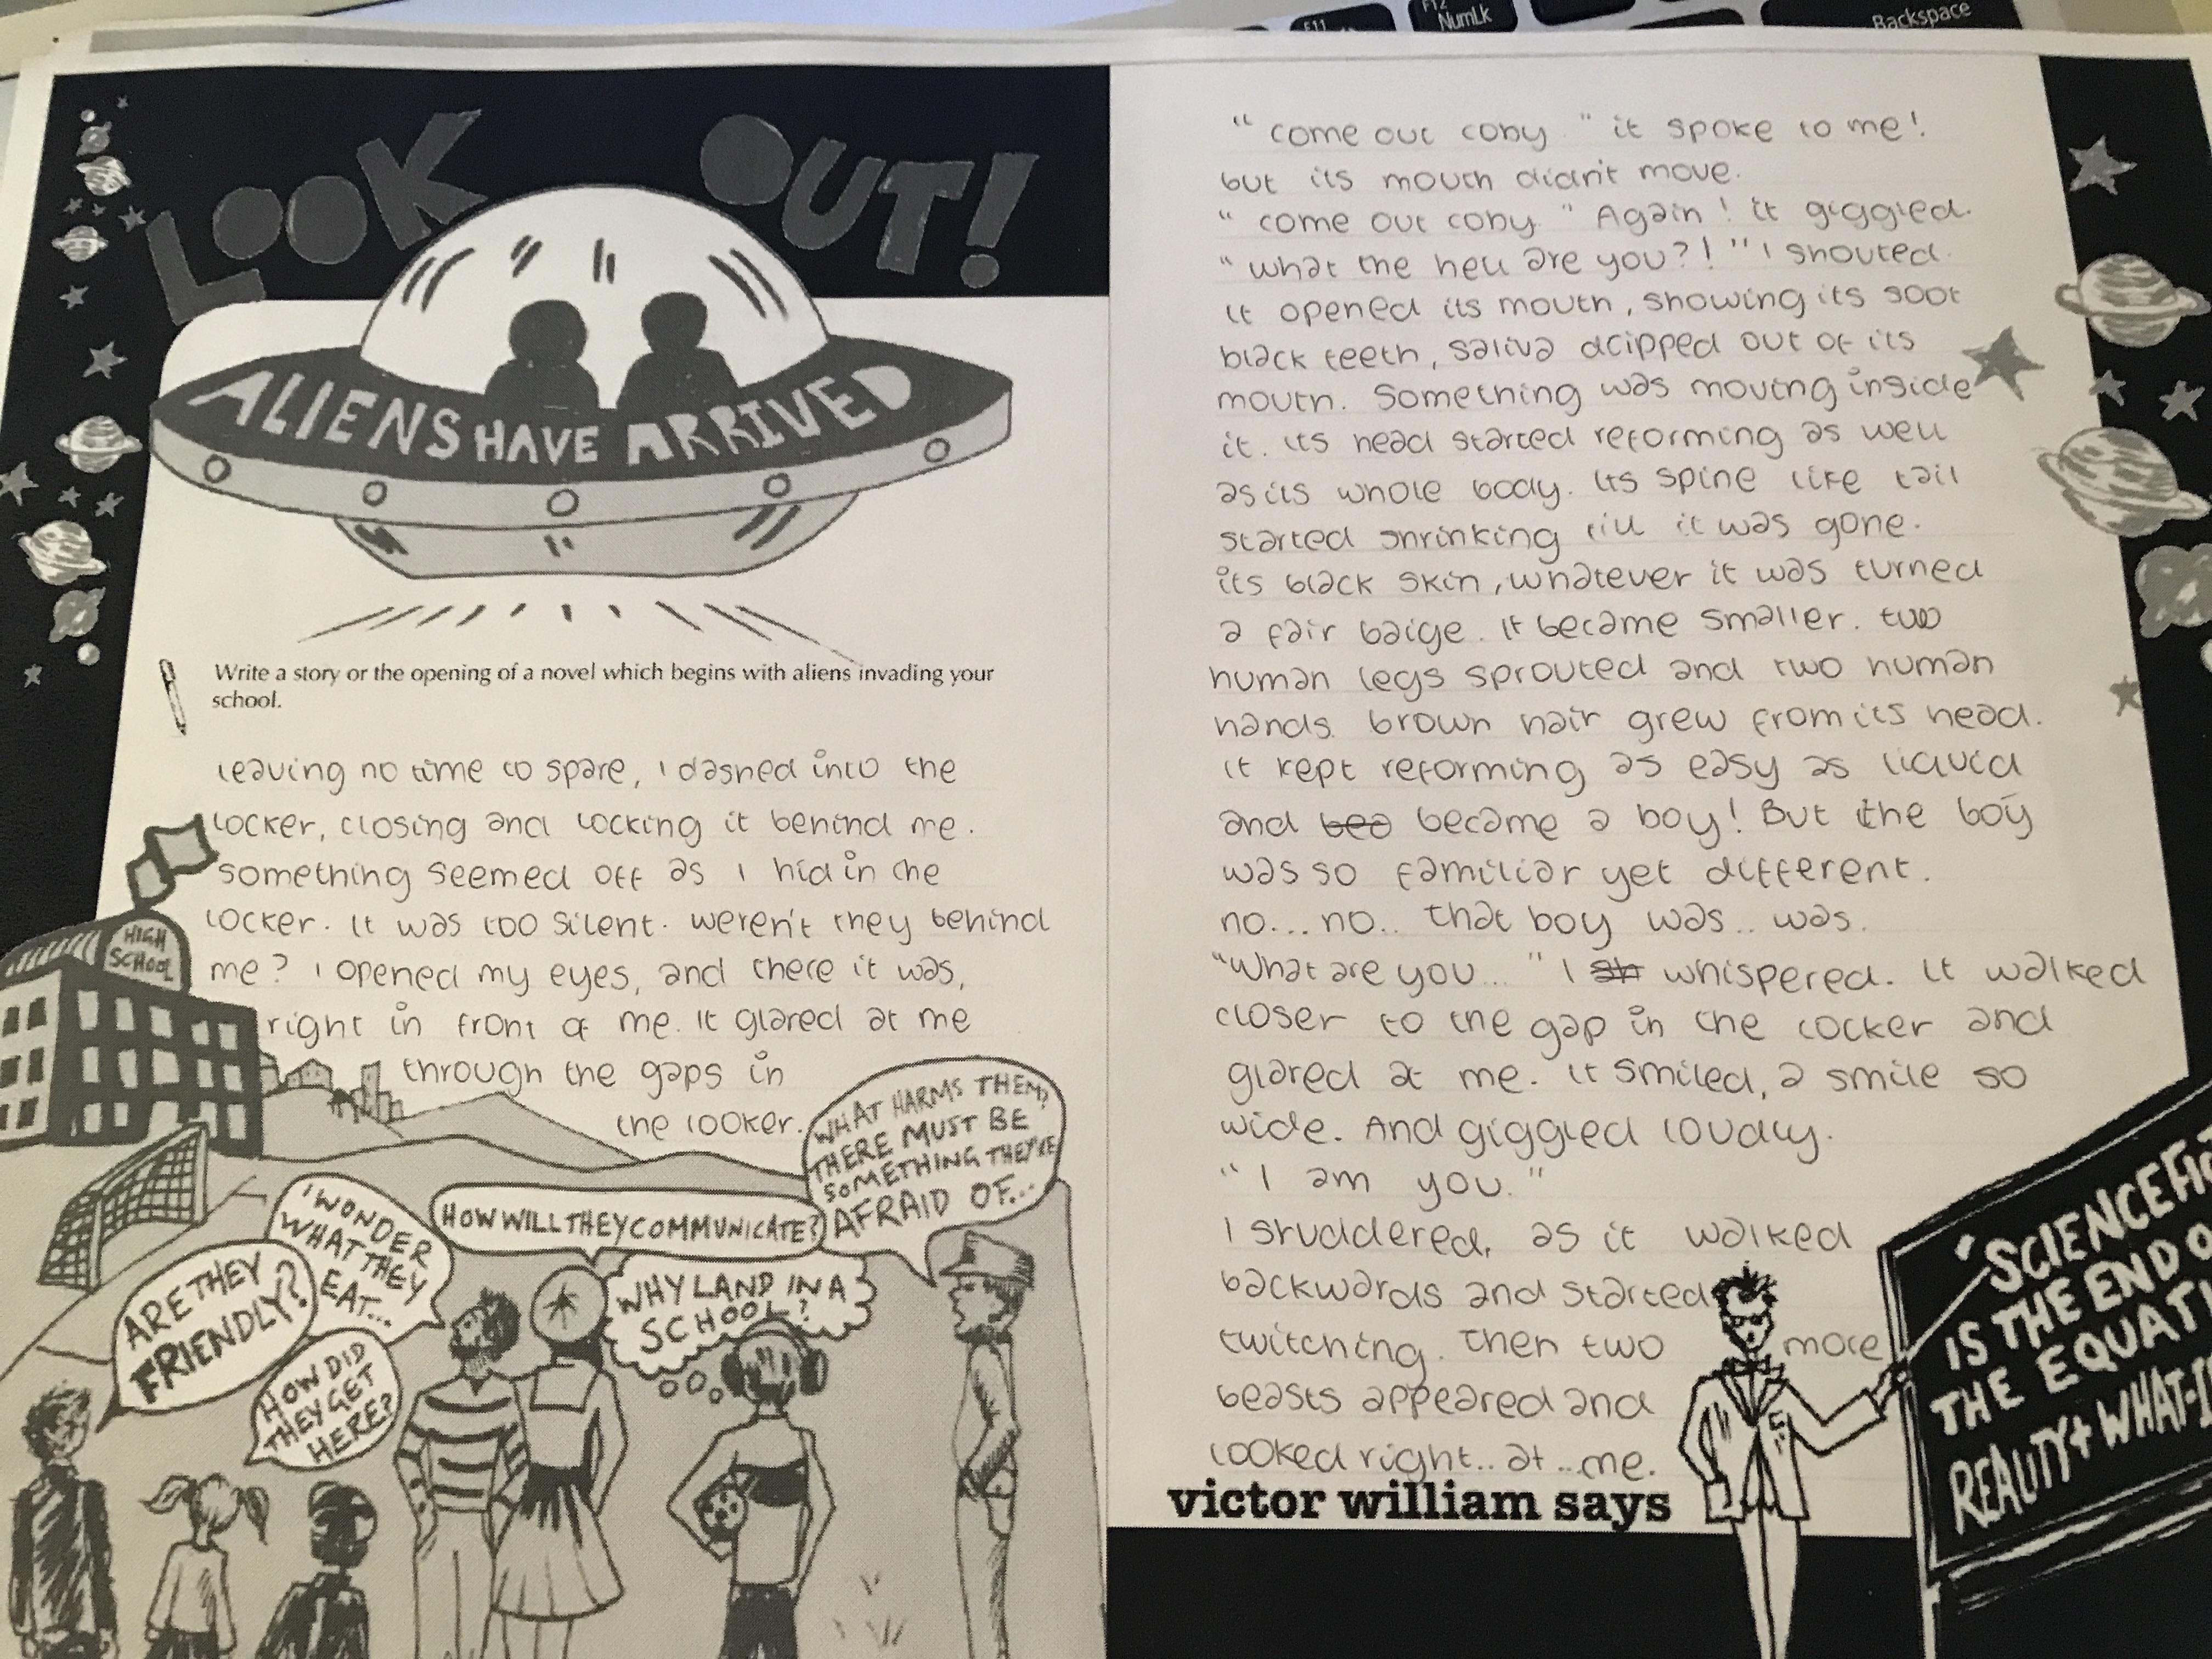 F11
F12
NumLk
Backspace
LOOK OUT!
ALIENS HAVE ARRIVED
Write a story or the opening of a novel which begins with aliens invading your
school.
leaving no time to spare, I dashed into the
locker, closing and locking it behind me.
something seemed off as I hid in the
locker. It was too silent. weren't they behind
me? I opened my eyes, and there it was,
right in front of me. It glared at me
through the gaps in
the locker.
HIGH
SCHOOL
WHAT HARMS THEM?
THERE MUST BE
SOMETHING THEY'RE
AFRAID OF...
I WONDER
WHAT THEY
EAT...
HOW WILL THEY COMMUNICATE?
ARE THEY
FRIENDLY?
WHY LAND IN A
SCHOOL?
HOW DID
THEY GET
HERE?
"come out coby" it spoke to me!
but its mouth didn't move.
"come out coby" Again! it giggled.
"what the hell are you?!" I shouted.
it opened its mouth, showing its soot
black teeth, saliva dripped out of its
mouth. Something was moving inside
it. its head started reforming as well
as its whole body. Its spine like tail
started shrinking till it was gone.
its black skin, whatever it was turned
a fair baige. It became smaller. two
human legs sprouted and two human
hands. brown hair grew from its head.
it kept reforming as easy as liquid
and bea became a boy! But the boy
was so familiar yet different.
no... no.. that boy was.. was.
"What are you..." I sh whispered. it walked
closer to the gap in the locker and
glared at me. it smiled, a smile so
wide. And giggled loudly.
"I am you."
I studdered, as it walked
backwards and started
twitching. Then two more
beasts appeared and
looked right.. at...me.
victor william says
'SCIENCE
IS THE END
THE
REALITY +